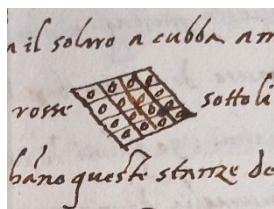 a il solaro a cubba am
rosse sotto li
bano queste stanze de